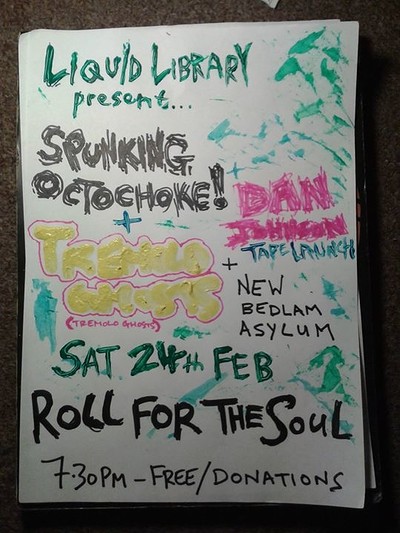 LIQUID LIBRARY
present...
SPUNKING
OCTOCHOKE!
+
+
DAN
JOHNSON
TAPE LAUNCH!
TREMOLO
GHOSTS
(TREMOLO GHOSTS)
+
NEW
BEDLAM
ASYLUM
SAT 24th FEB
ROLL FOR THE SOUL
7.30PM - FREE/DONATIONS